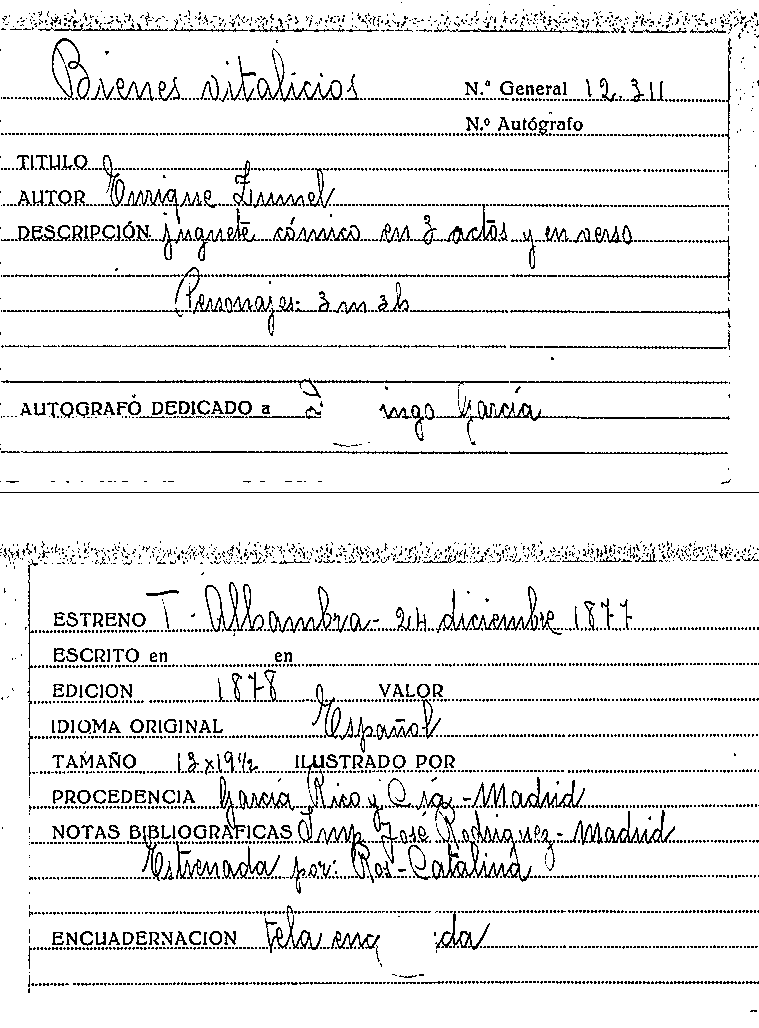 Bienes vitalicios N.º General 12.311
N.º Autógrafo
TITULO
AUTOR Enrique Zumel
DESCRIPCIÓN juguete cómico en 3 actos y en verso
Personajes: 3 m 3 h
AUTOGRAFO DEDICADO a ingo García
ESTRENO T. Alhambra - 24 diciembre 1877
ESCRITO en en
EDICION 1878 VALOR
IDIOMA ORIGINAL Español
TAMAÑO 13 x 19 1/2 ILUSTRADO POR
PROCEDENCIA García Rico y Cía - Madrid
NOTAS BIBLIOGRAFICAS Imp. José Rodriguez - Madrid
Estrenada por: Ros-Catalina
ENCUADERNACION tela eng da